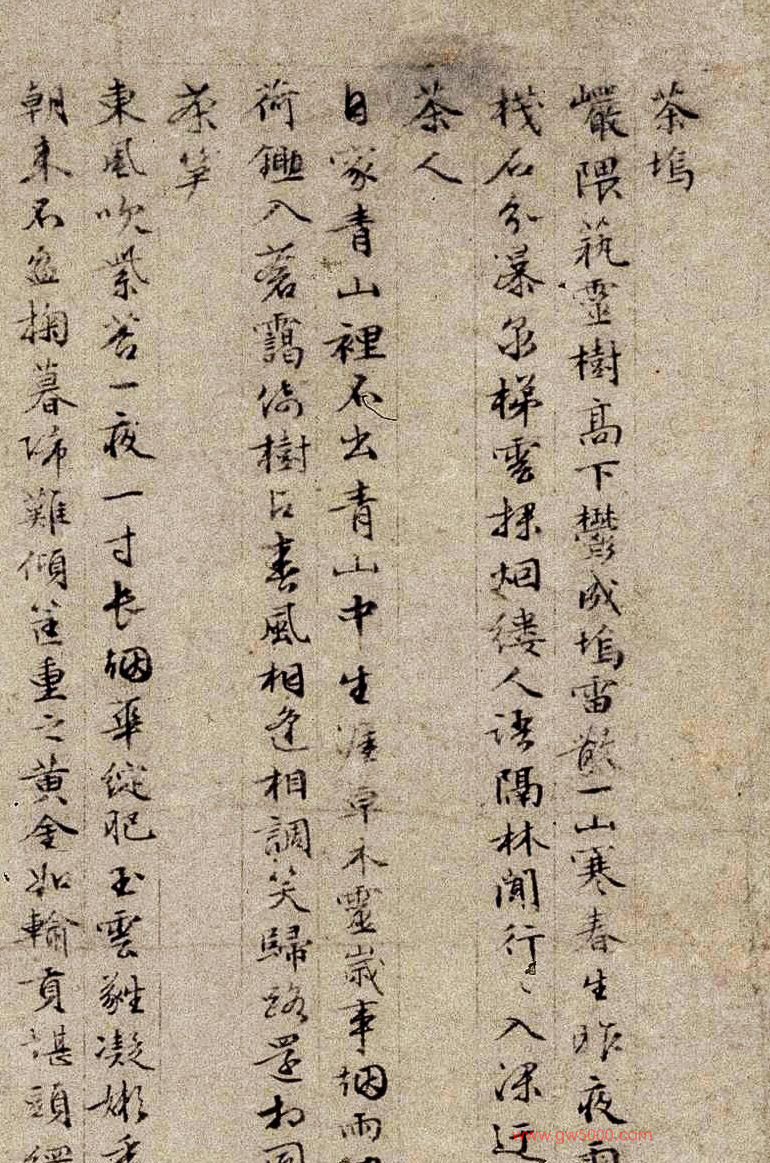 茶塢
巖隈藝靈樹高下鬱成塢雷散一山寒春生昨夜雨
棧石分瀑泉梯雲探烟縷人語隔林聞行〻入深迂
茶人
自家青山裡不出青山中生涯草木靈歲事烟雨
荷鉏入蒼靄倚樹占春風相逢相調笑歸路還相同
茶筍
東風吹紫苔一夜一寸長烟華綻肥玉雲蕤凝嫩香
朝來不盈掬暮歸難傾筐重之黄金如輸貢堪頭綱
www.gw5000.com